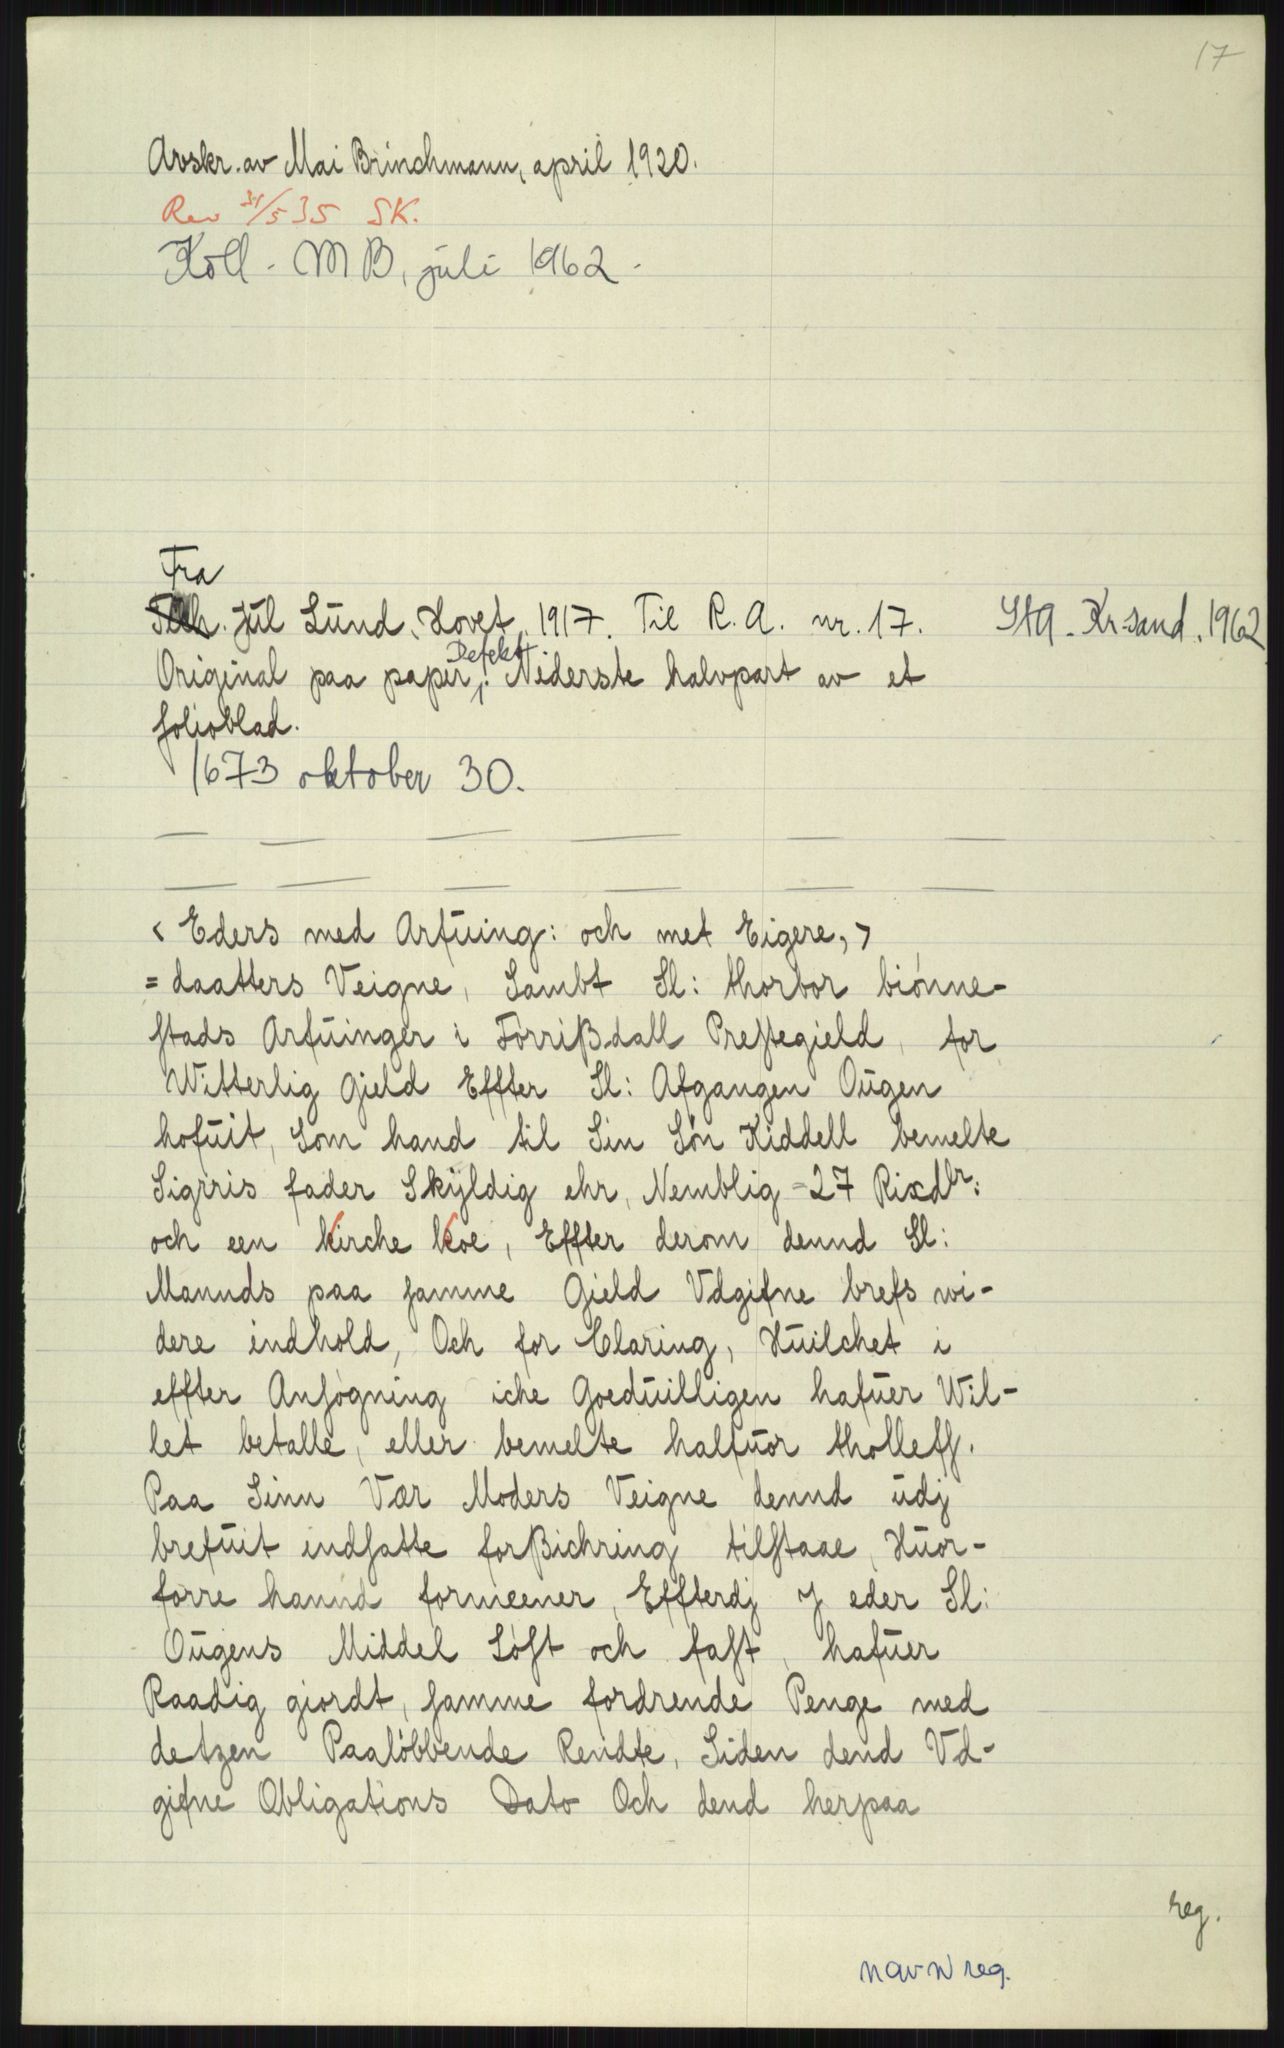 17
Avskr. av Mai Brinchmann, april 1920.
Rev 31/5 35 SK.
Koll. MB, juli 1962.
Fra
Jul Lund, Hovet, 1917. Til R. A. nr. 17. StA. Kr.sand. 1962
Original paa papir, Defekt. Nederste halvpart av et
folioblad.
1673 oktober 30.
< Eders med Arfuing: och met Eigere, >
= daatters Veigne, Sambt Sl: thorbor biónne-
stads Arfuinger i Forrißdall Prestegield, for
Witterlig Gield Effter Sl: Afgangen Ougen
hofuit, Som hand til Sin Són Kiddell bemelte
Sigrris fader Skÿldig ehr, Nemblig =27 Rixdlr:
och een kirche koe, Effter derom dennd Sl:
Mannds paa samme Gield Vdgifne brefs wi-
dere indhold, Och for Claring, Huilchet i
effter Ansógning iche Goeduilligen hafuer Wil-
let betalle, eller bemelte halfuor tholleffs.
Paa Sinn Vær Moders Veigne dennd udj
brefuit indsatte forßichring tilstaae, Huor-
forre hannd formeener, Effterdj J eder Sl:
Ougens Middel Lóst och fast, hafuer
Raadig giordt, samme fordrende Penge med
detzen Paalóbbende Rendte, Siden dend Vd-
gifne Obligations Dato Och dend herpaa
reg.
navnreg.